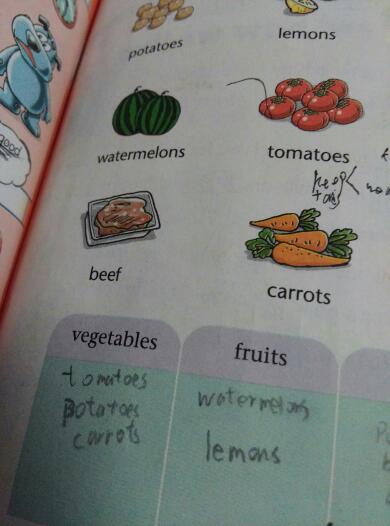 potatoes
lemons
good
watermelons
tomatoes
beef
carrots
vegetables
fruits
tomatoes
potatoes
carrots
watermelons
lemons